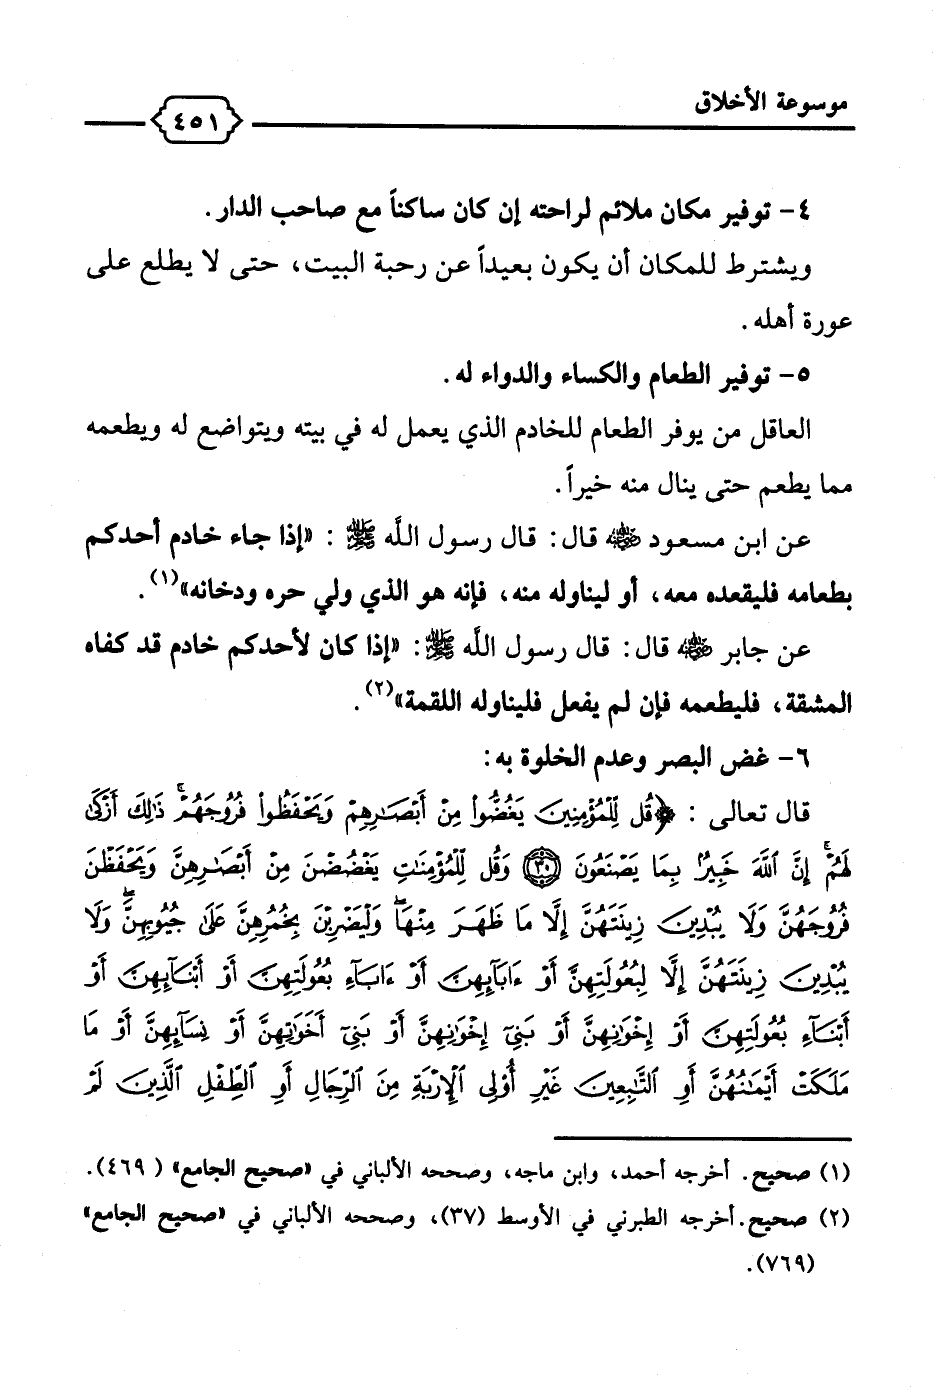 موسوعة الأخلاق
٤٥١
٤- توفير مكان ملائم لراحته إن كان ساكناً مع صاحب الدار.
ويشترط للمكان أن يكون بعيداً عن رحبة البيت، حتى لا يطلع على
عورة أهله.
٥- توفير الطعام والكساء والدواء له.
العاقل من يوفر الطعام للخادم الذي يعمل له في بيته ويتواضع له ويطعمه
مما يطعم حتى ينال منه خيراً.
عن ابن مسعود رضي الله عنه قال: قال رسول اللَّه ﷺ : «إذا جاء خادم أحدكم
بطعامه فليقعده معه، أو ليناوله منه، فإنه هو الذي ولي حره ودخانه»(١).
عن جابر رضي الله عنه قال: قال رسول اللَّه ﷺ: «إذا كان لأحدكم خادم قد كفاه
المشقة، فليطعمه فإن لم يفعل فليناوله اللقمة»(٢).
٦- غض البصر وعدم الخلوة به:
قال تعالى : ﴿قُل لِّلْمُؤْمِنِينَ يَغُضُّوا۟ مِنْ أَبْصَٰرِهِمْ وَيَحْفَظُوا۟ فُرُوجَهُمْ ۚ ذَٰلِكَ أَزْكَىٰ
لَهُمْ ۗ إِنَّ ٱللَّهَ خَبِيرٌۢ بِمَا يَصْنَعُونَ ۝٣٠ وَقُل لِّلْمُؤْمِنَٰتِ يَغْضُضْنَ مِنْ أَبْصَٰرِهِنَّ وَيَحْفَظْنَ
فُرُوجَهُنَّ وَلَا يُبْدِينَ زِينَتَهُنَّ إِلَّا مَا ظَهَرَ مِنْهَا ۖ وَلْيَضْرِبْنَ بِخُمُرِهِنَّ عَلَىٰ جُيُوبِهِنَّ ۖ وَلَا
يُبْدِينَ زِينَتَهُنَّ إِلَّا لِبُعُولَتِهِنَّ أَوْ ءَابَآئِهِنَّ أَوْ ءَابَآءِ بُعُولَتِهِنَّ أَوْ أَبْنَآئِهِنَّ أَوْ
أَبْنَآءِ بُعُولَتِهِنَّ أَوْ إِخْوَٰنِهِنَّ أَوْ بَنِىٓ إِخْوَٰنِهِنَّ أَوْ بَنِىٓ أَخَوَٰتِهِنَّ أَوْ نِسَآئِهِنَّ أَوْ مَا
مَلَكَتْ أَيْمَٰنُهُنَّ أَوِ ٱلتَّٰبِعِينَ غَيْرِ أُو۟لِى ٱلْإِرْبَةِ مِنَ ٱلرِّجَالِ أَوِ ٱلطِّفْلِ ٱلَّذِينَ لَمْ
(١) صحيح. أخرجه أحمد، وابن ماجه، وصححه الألباني في «صحيح الجامع» ( ٤٦٩).
(٢) صحيح.أخرجه الطبرني في الأوسط (٣٧)، وصححه الألباني في «صحيح الجامع»
(٧٦٩).